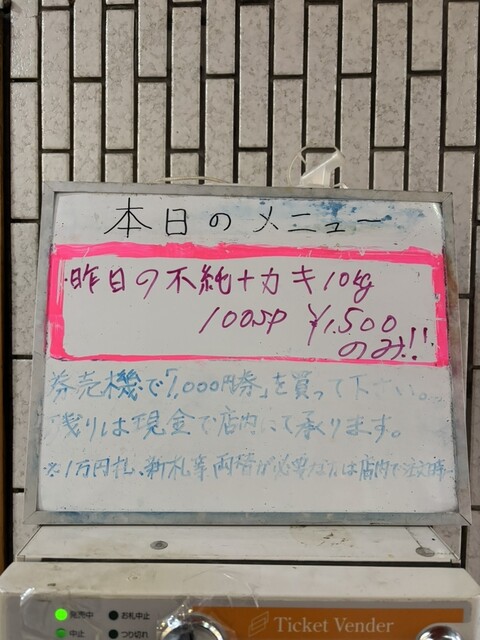 本日のメニュー
・昨日の不純+カキ10kg
100SP ¥1,500
のみ!!
券売機で「1,000円券」を買って下さい。
残りは現金で店内にて承ります。
※1万円札、新札等両替が必要な方は店内で
発売中
お札中止
中止
つり切れ
Ticket Vender